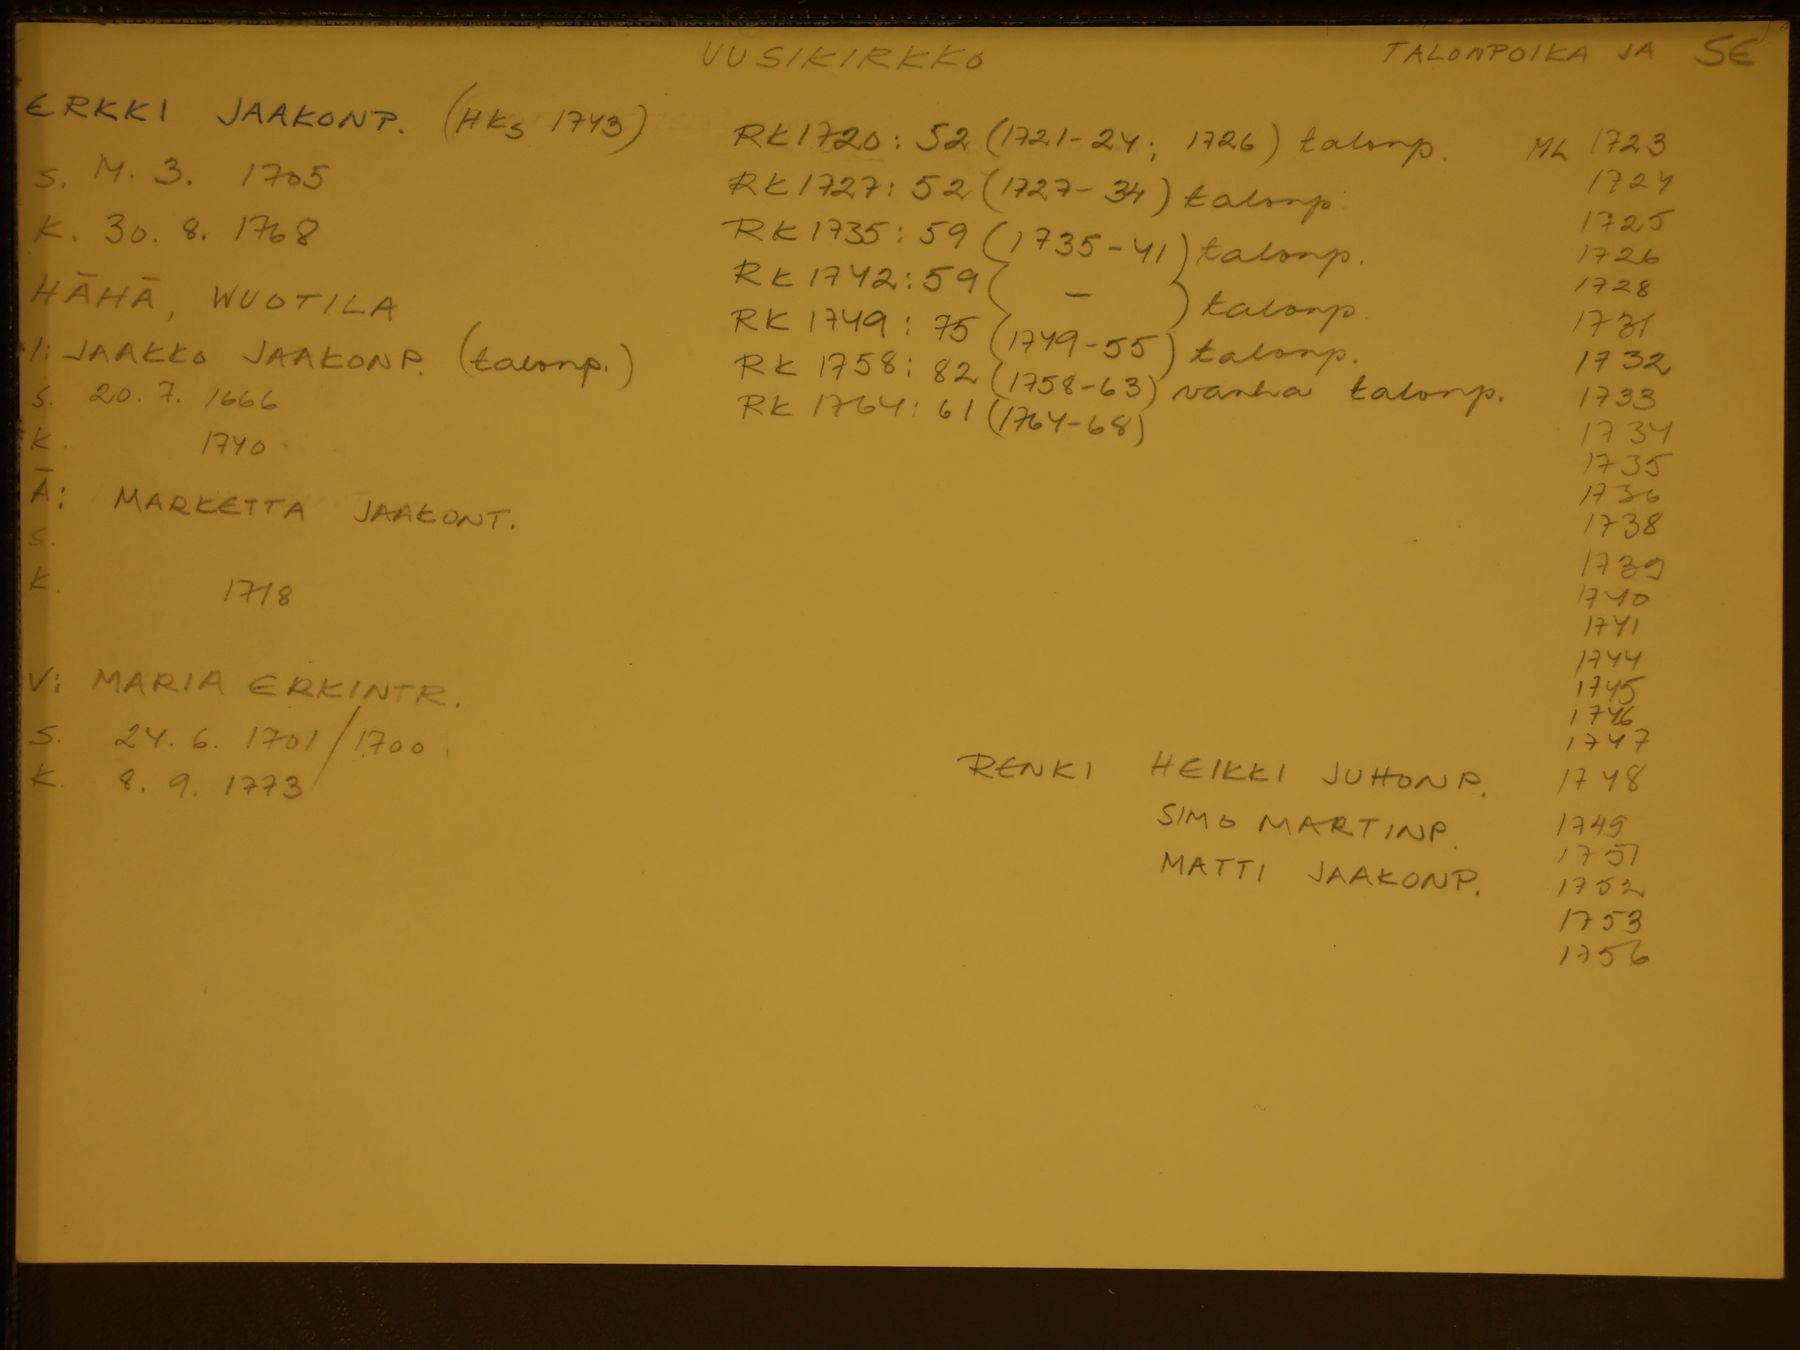 UUSIKIRKKO
TALONPOIKA JA SE
ERKKI JAAKONP. (HKS 1743)
S. 14. 3. 1705
K. 30. 8. 1768
HÄHÄ, WUOTILA
I: JAAKKO JAAKONP. (talonp.)
S. 20. 7. 1666
K. 1740
Ä: MARKETTA JAAKONT.
S.
K. 1718
V: MARIA ERKINTR.
S. 24. 6. 1701 / 1700
K. 8. 9. 1773
RK 1720: 52 (1721-24; 1726) talonp.
RK 1727: 52 (1727-34) talonp
RK 1735: 59 (1735-41) talonp.
RK 1742: 59 ( - ) talonp.
RK 1749: 75 (1749-55) talonp.
RK 1758: 82 (1758-63) vanha talonp.
RK 1764: 61 (1764-68)
ML 1723
1724
1725
1726
1728
1731
1732
1733
1734
1735
1736
1738
1739
1740
1741
1744
1745
1746
1747
RENKI HEIKKI JUHONP. 1748
SIMO MARTINP. 1749
1751
MATTI JAAKONP. 1752
1753
1756